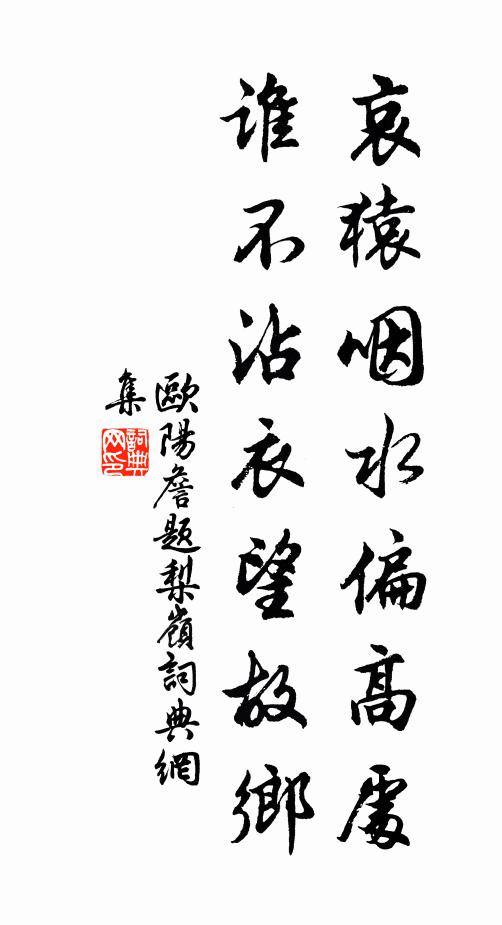 哀猿咽水偏高處
誰不沾衣望故鄉
歐陽詹題梨嶺詞典網
集
詞典
网印